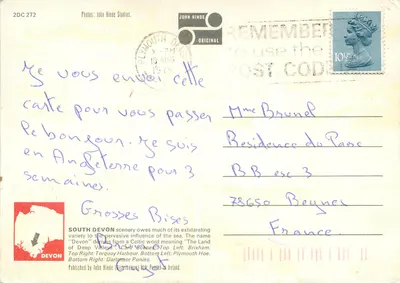 2DC 272
Photos: John Hinde Studios.
JOHN HINDE
ORIGINAL
REMEMBER
to use the
POST CODE
10½P
Je vous envoi cette
carte pour vous passer
le bonjour. Je suis
en Angleterre pour 3
semaines.
Grosses Bises
Mme Brunel
Residence du Parc
BB esc 3
78650 Beynes
France.
DEVON
SOUTH DEVON scenery owes much of its exhilarating
variety to the pervasive influence of the sea. The name
"Devon" derives from a Celtic word meaning "The Land
of Deep Valleys". Top Left: Brixham.
Top Right: Torquay Harbour. Bottom Left: Plymouth Hoe.
Bottom Right: Dartmoor Ponies.
Published by John Hinde